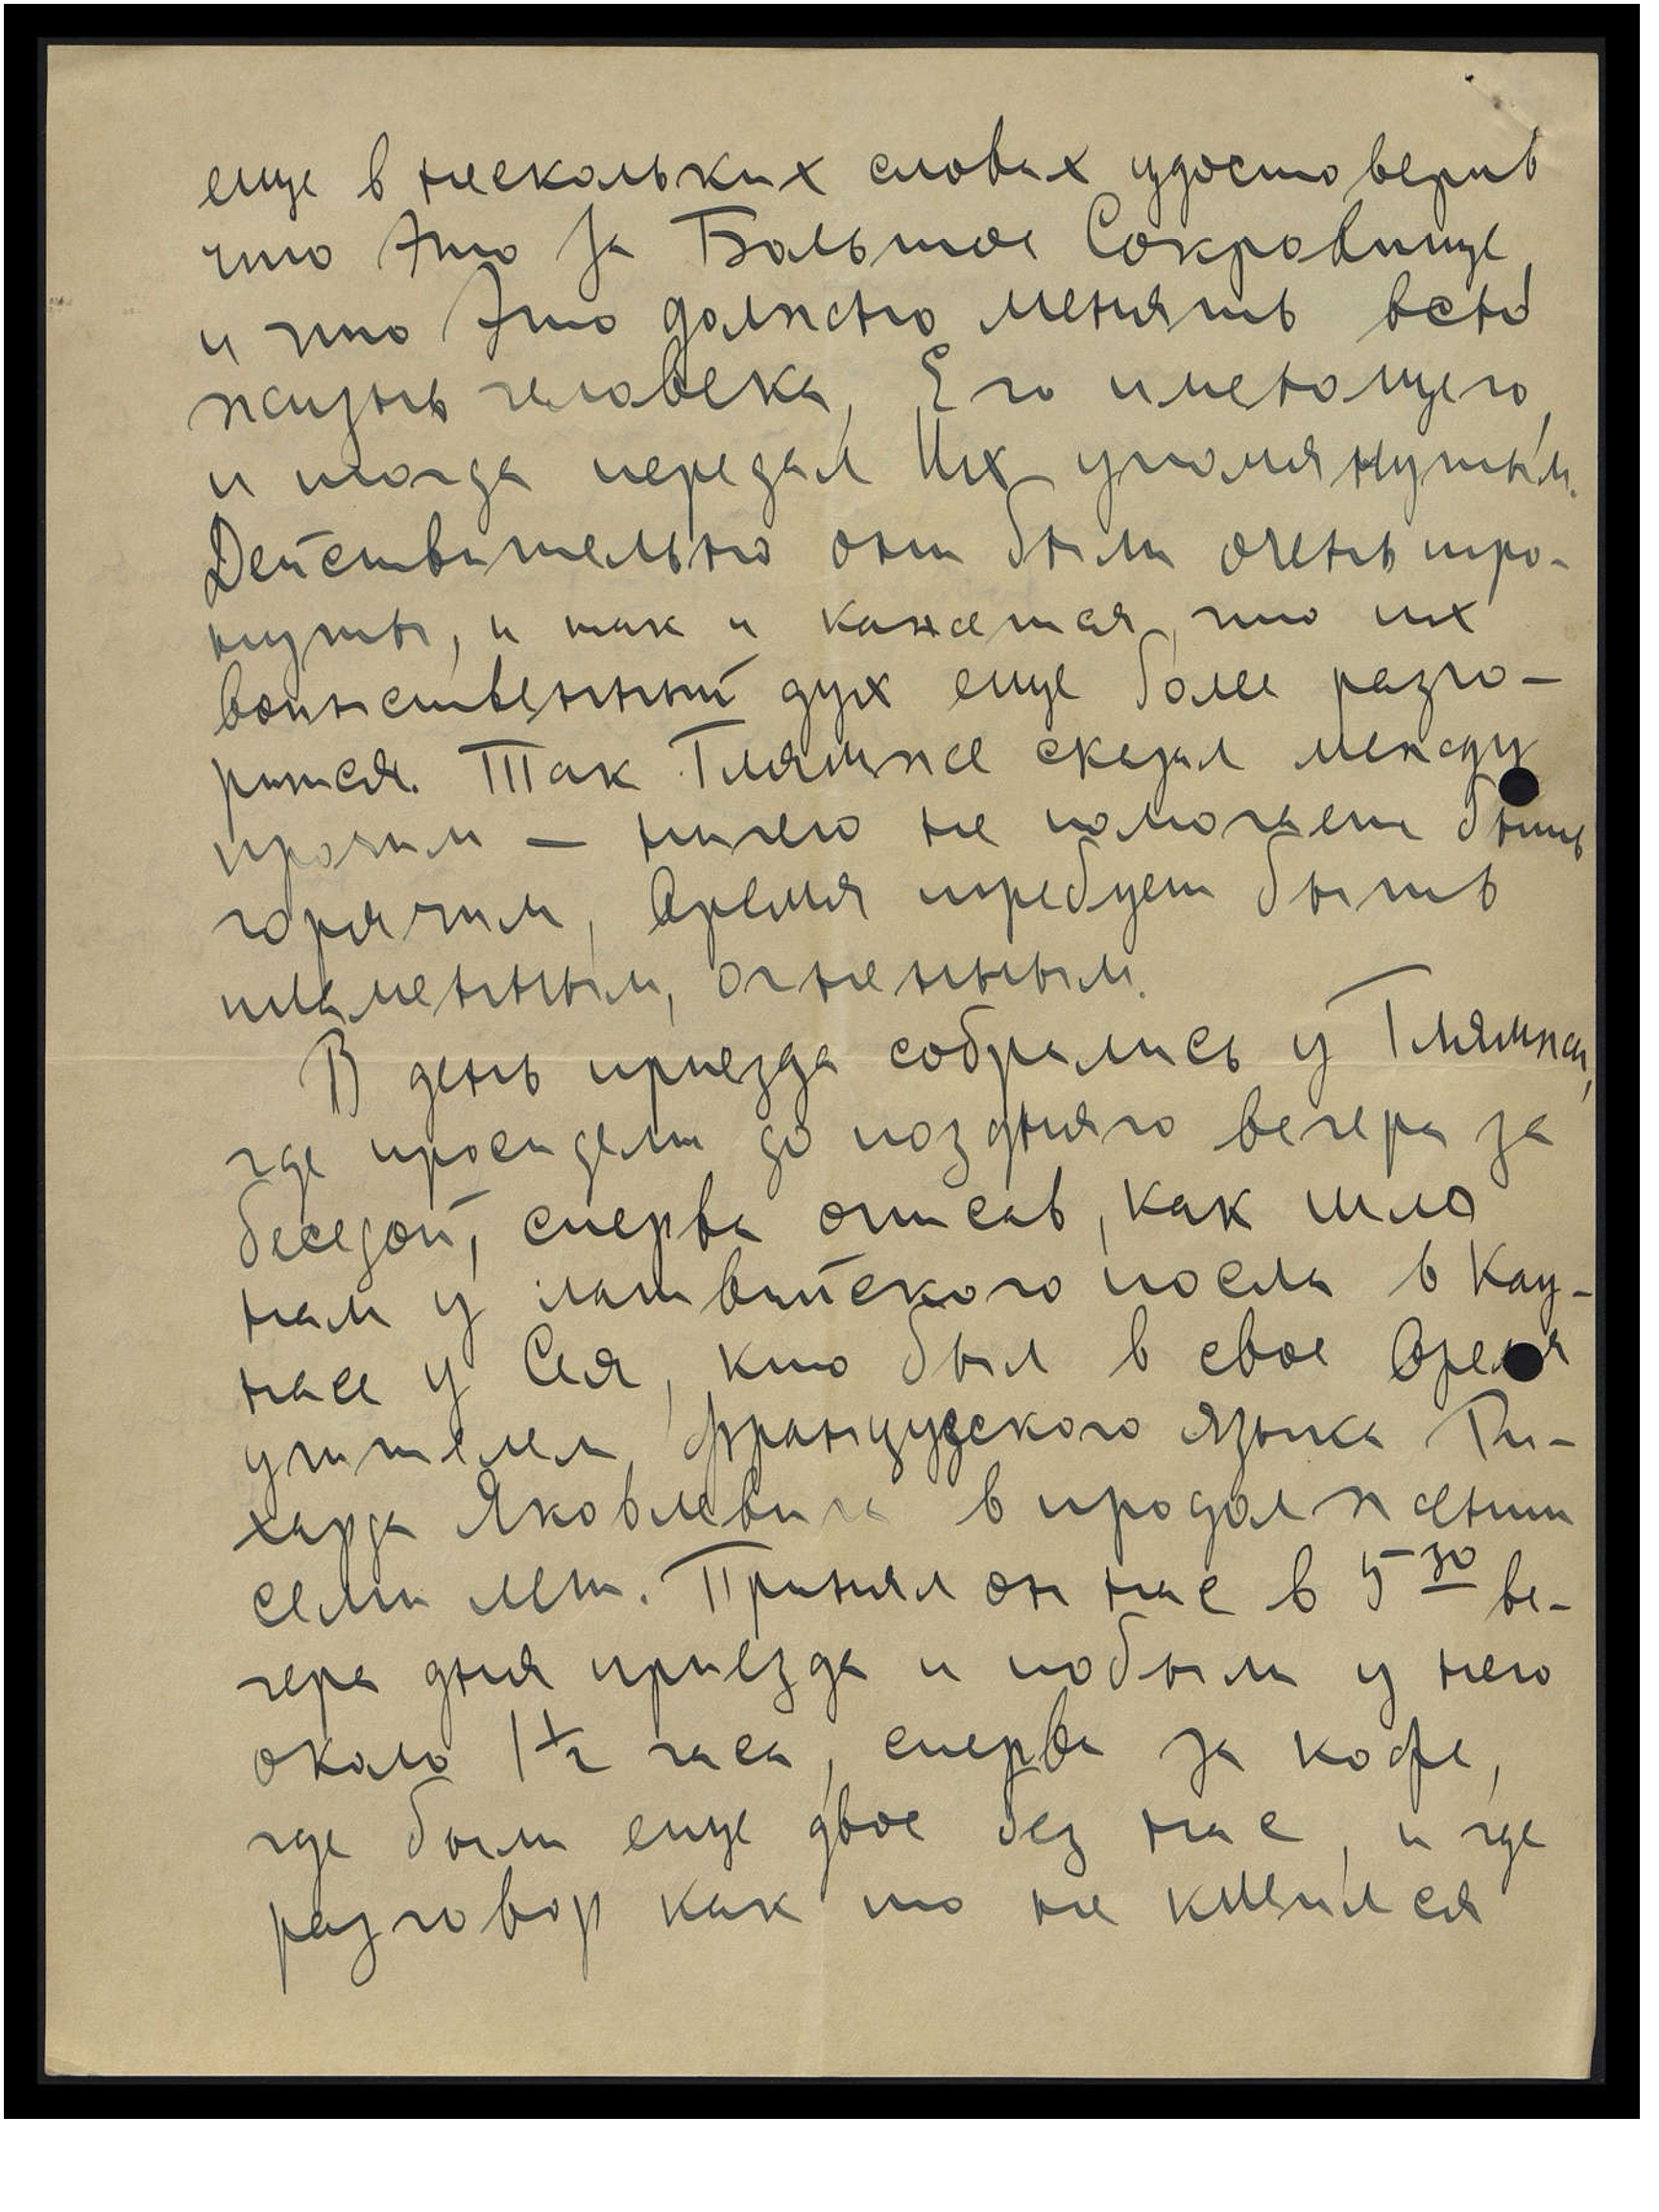 еще в нескольких словах удостоверив
что это за Большое Сокровище,
и что это должно менять всю
жизнь человека, Его имеющего,
и тогда передал Их упомянутым.
Действительно они были очень тро-
нуты, и так и кажется, что их
воинственный дух еще более разго-
рится. Так Глямже сказал между
прочим — ничего не помогает быть
горячим, Время требует быть
пламенным, огненным.
В день приезда собрались у Глямжи,
где просидели до позднято вечера за
беседой, сперва описав, как шло
нам у латвийского посла в Кау-
насе у Сея, кто был в свое Время
учителем французского языка Ри-
харда Яковлевича в продолжении
семи лет. Принял он нас в 5 30 ве-
чера дня приезда и побыли у него
около 1 1/2 часа, сперва за кофе,
где были еще двое без нас, и где
разговор как то не клеился